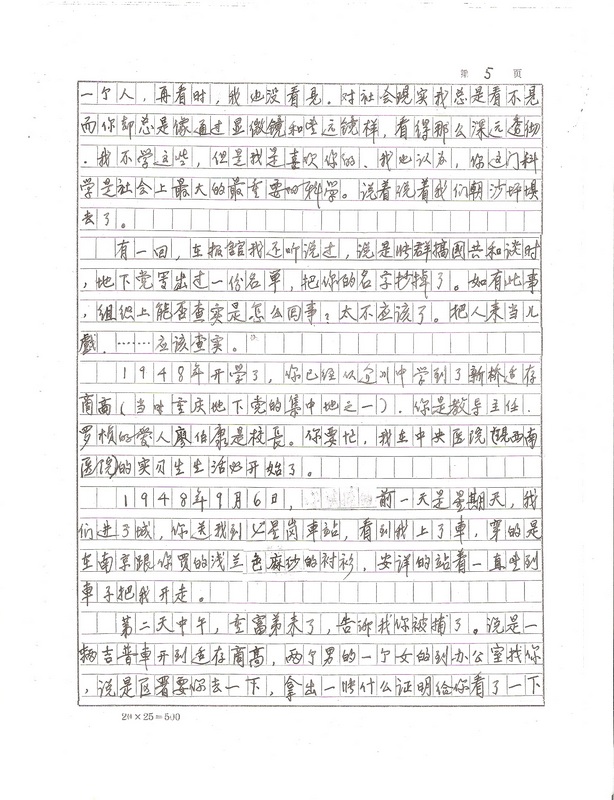 第 5 页
一个人，再看时，我也没看见．对社会现实我总是看不见
而你却总是像通过显微镜和望远镜样，看得那么深远透彻
．我不学这些，但是我是喜欢你的、我也认为，你这门科
学是社会上最大的最重要的科学。说着说着我们朝沙坪坝
去了。
有一回，在报馆我还听说过，说是张群搞国共和谈时
，地下党写出过一份名单，把你的名字抄掉了。如有此事
，组织上能否查实是怎么回事？太不应该了。把人来当儿
戲，……应该查实。
1948年开学了，你已经从宜川中学到了新桥适存
商高（当时重庆地下党的集中地之一）．你是教导主任．
罗桢的爱人廖伯康是校長。你要忙，我在中央医院（現西南
医院）的实习生生活也开始了。
1948年9月6日， 前一天是星期天，我
们进了城，你送我到七星岗車站，看到我上了車，穿的是
在南京跟你买的浅兰色麻纱的衬衫，安详的站着一直望到
車子把我开走。
第二天中午，至富弟来了，告诉我你被捕了。说是一
辆吉普車开到适存商高，两个男的一个女的到办公室找你
，说是区署要你去一下，拿出一张什么证明给你看了一下
20×25=500